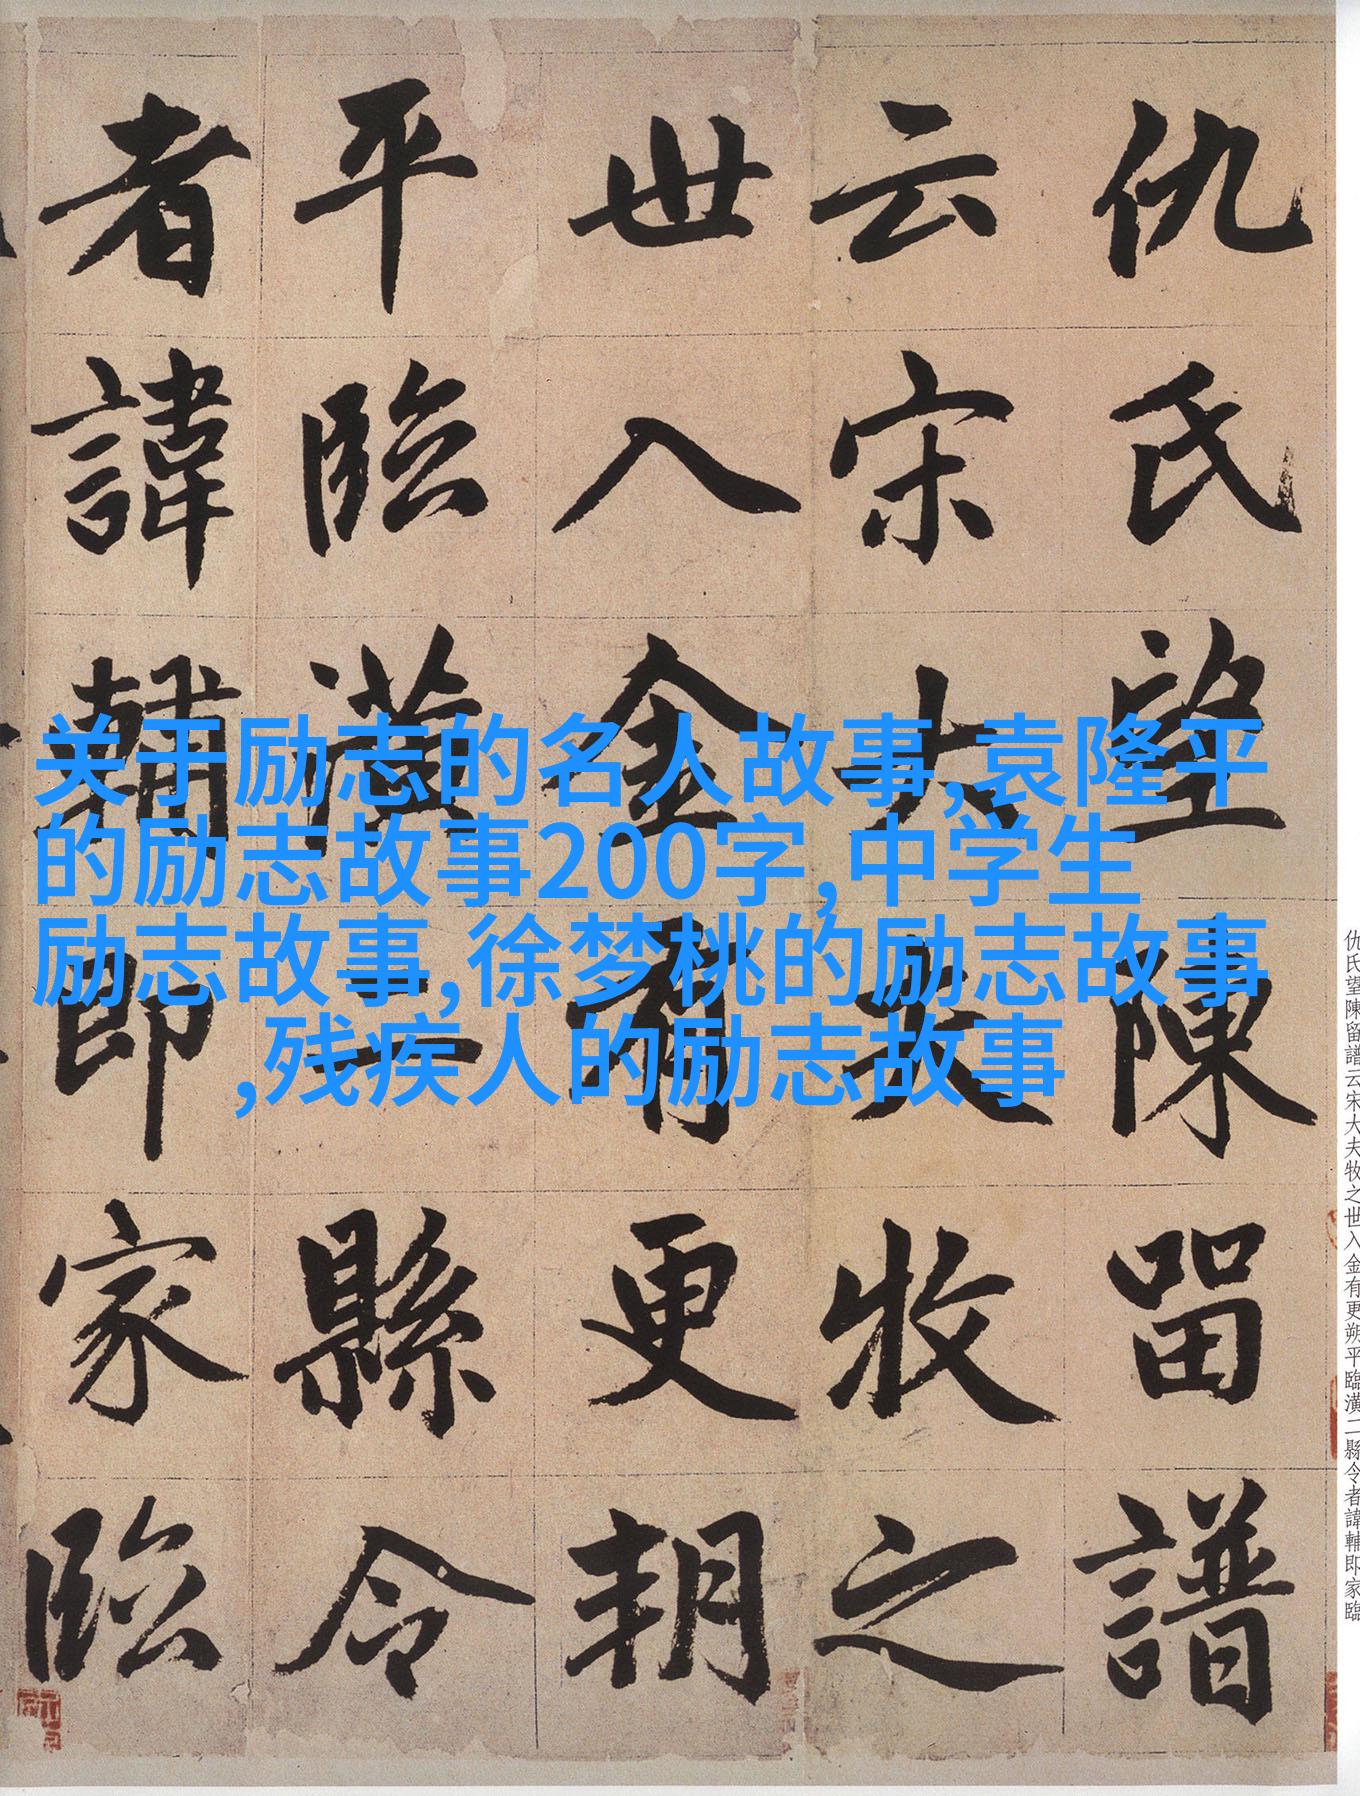 仇氏望陳留譜
云宋大夫牧之
世入金有更朔
平臨潢二縣令
者諱輔即家臨
关于励志的名人故事,袁隆平
的励志故事200字,中学生
励志故事,徐梦桃的励志故事
,残疾人的励志故事
仇氏望陳留譜云宋大夫牧之世入金有更朔平臨潢二縣令者諱輔即家臨